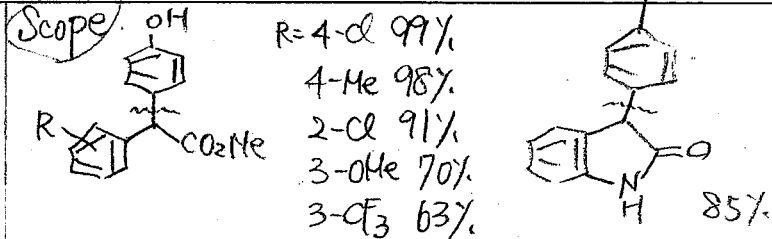 Scope
OH
R
CO2Me
R= 4-Cl 99%
4-Me 98%
2-Cl 91%
3-OMe 70%
3-CF3 63%
O
N
H
85%